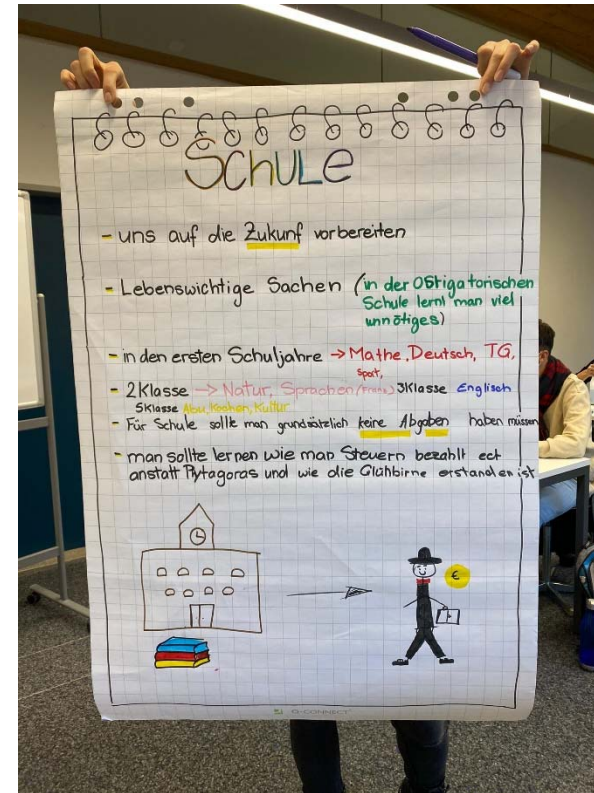 SChULe
- uns auf die Zukunf vorbereiten
- Lebenswichtige Sachen (in der Obligatorischen
Schule lernt man viel
unnötiges)
- in den ersten Schuljahre → Mathe, Deutsch, TG,
Sport,
- 2Klasse → Natur, Sprachen (Franz) 3Klasse Englisch
5Klasse Abu, Kochen, Kultur
- Für Schule sollte man grundsätzlich keine Abgaben haben müssen
- man sollte lernen wie man Steuern bezahlt ect
anstatt Pytagoras und wie die Glühbirne erstanden ist
€
Q-CONNECT